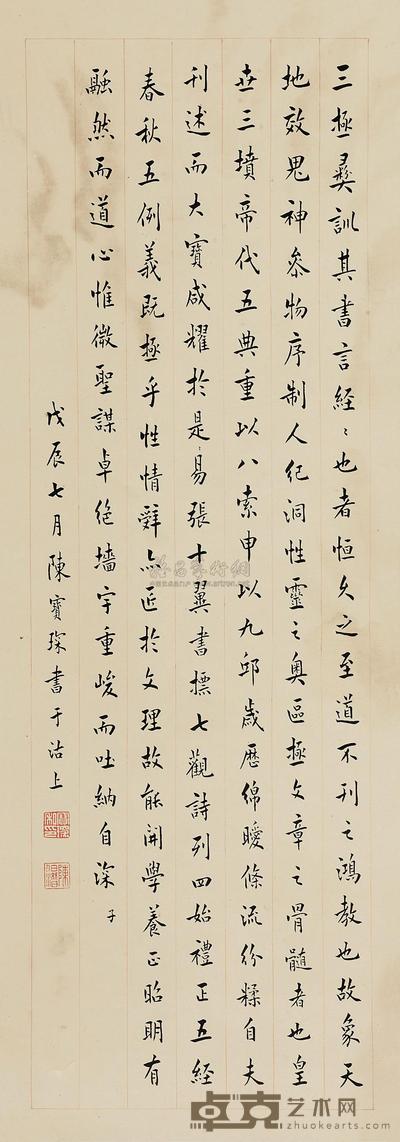 三極彝訓其書言經〻也者恒久之至道不刊之鴻教也故象天
地效鬼神參物序制人紀洞性靈之奧區極文章之骨髓者也皇
世三墳帝代五典重以八索申以九邱歲歷綿曖條流紛糅自夫
刊述而大寶咸耀於是〻易張十翼書標七觀詩列四始禮正五經
春秋五例義既極乎性情辭亦匠於文理故能開學養正昭明有
融然而道心惟微聖謀卓絕墻宇重峻而吐納自深 子
戊辰七月陳寶琛書于沽上
卓克艺术网
www.zhuokearts.com